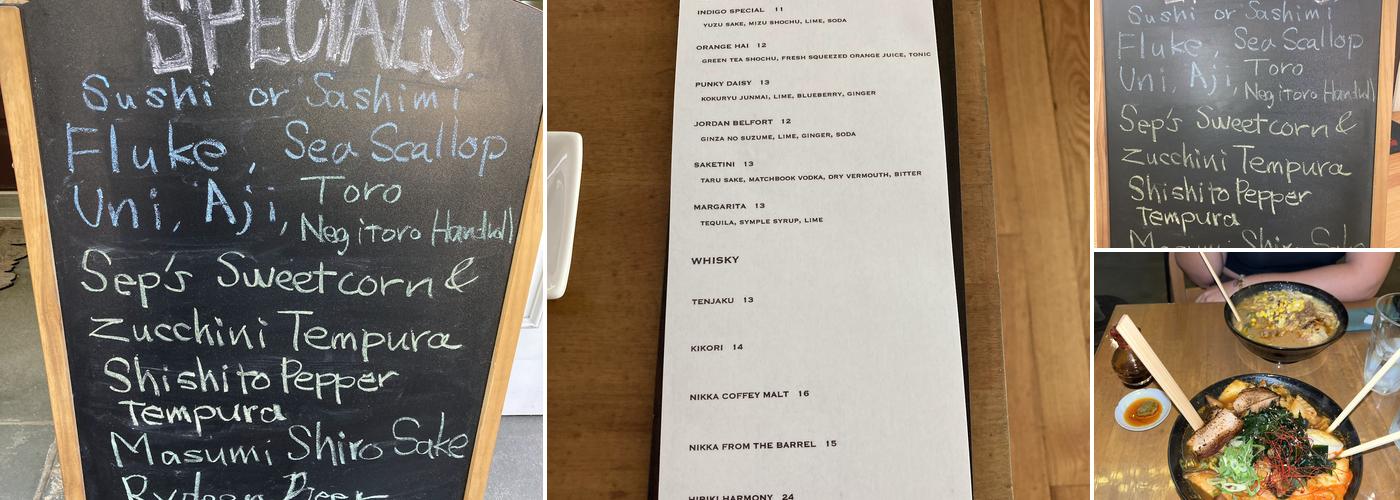 SPECIALS
Sushi or Sashimi
Fluke, Sea Scallop
Uni, Aji, Toro
Negitoro Handroll
Sep's Sweetcorn &
Zucchini Tempura
Shishito Pepper
Tempura
Masumi Shiro Sake
Beer
INDIGO SPECIAL 11
YUZU SAKE, MIZU SHOCHU, LIME, SODA
ORANGE HAI 12
GREEN TEA SHOCHU, FRESH SQUEEZED ORANGE JUICE, TONIC
PUNKY DAISY 13
KOKURYU JUNMAI, LIME, BLUEBERRY, GINGER
JORDAN BELFORT 12
GINZA NO SUZUME, LIME, GINGER, SODA
SAKETINI 13
TARU SAKE, MATCHBOOK VODKA, DRY VERMOUTH, BITTER
MARGARITA 13
TEQUILA, SYMPLE SYRUP, LIME
WHISKY
TENJAKU 13
KIKORI 14
NIKKA COFFEY MALT 16
NIKKA FROM THE BARREL 15
HIBIKI HARMONY 24
Sushi or Sashimi
Fluke, Sea Scallop
Uni, Aji, Toro
Negitoro Handroll
Sep's Sweetcorn &
Zucchini Tempura
Shishito Pepper
Tempura
Masumi Shiro Sake